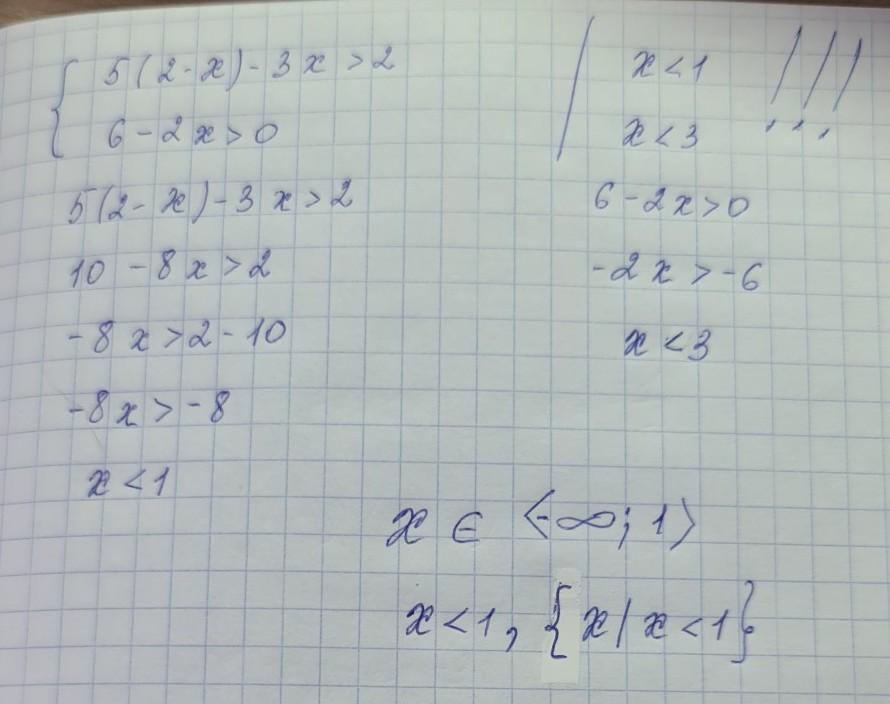 5(2-x)-3x>2
6-2x>0
5(2-x)-3x>2
10-8x>2
-8x>2-10
-8x>-8
x<1
x<1 !!!
x<3
6-2x>0
-2x>-6
x<3
x ∈ ⟨-∞; 1⟩
x<1, {x/x<1}